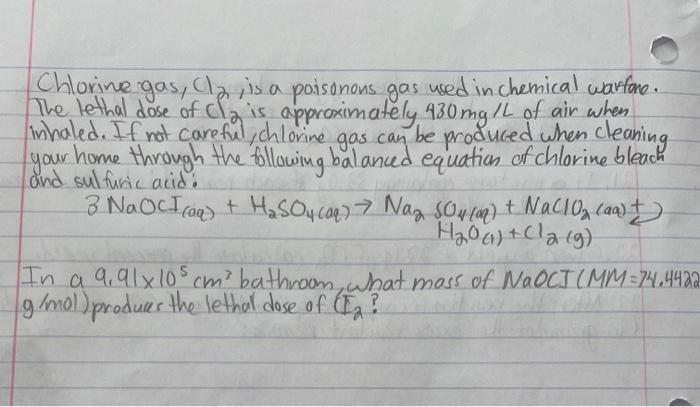 Chlorine gas, Cl₂, is a poisonous gas used in chemical warfare.
The lethal dose of Cl₂ is approximately 430 mg/L of air when
inhaled. If not careful, chlorine gas can be produced when cleaning
your home through the following balanced equation of chlorine bleach
and sulfuric acid:
3 NaOCI (aq) + H₂SO₄ (aq) → Na₂ SO₄ (aq) + NaClO₂ (aq) +
H₂O (l) + Cl₂ (g)
In a 9.91x10⁵ cm³ bathroom, what mass of NaOCI (MM=74.4422
g/mol) produces the lethal dose of CI₂?